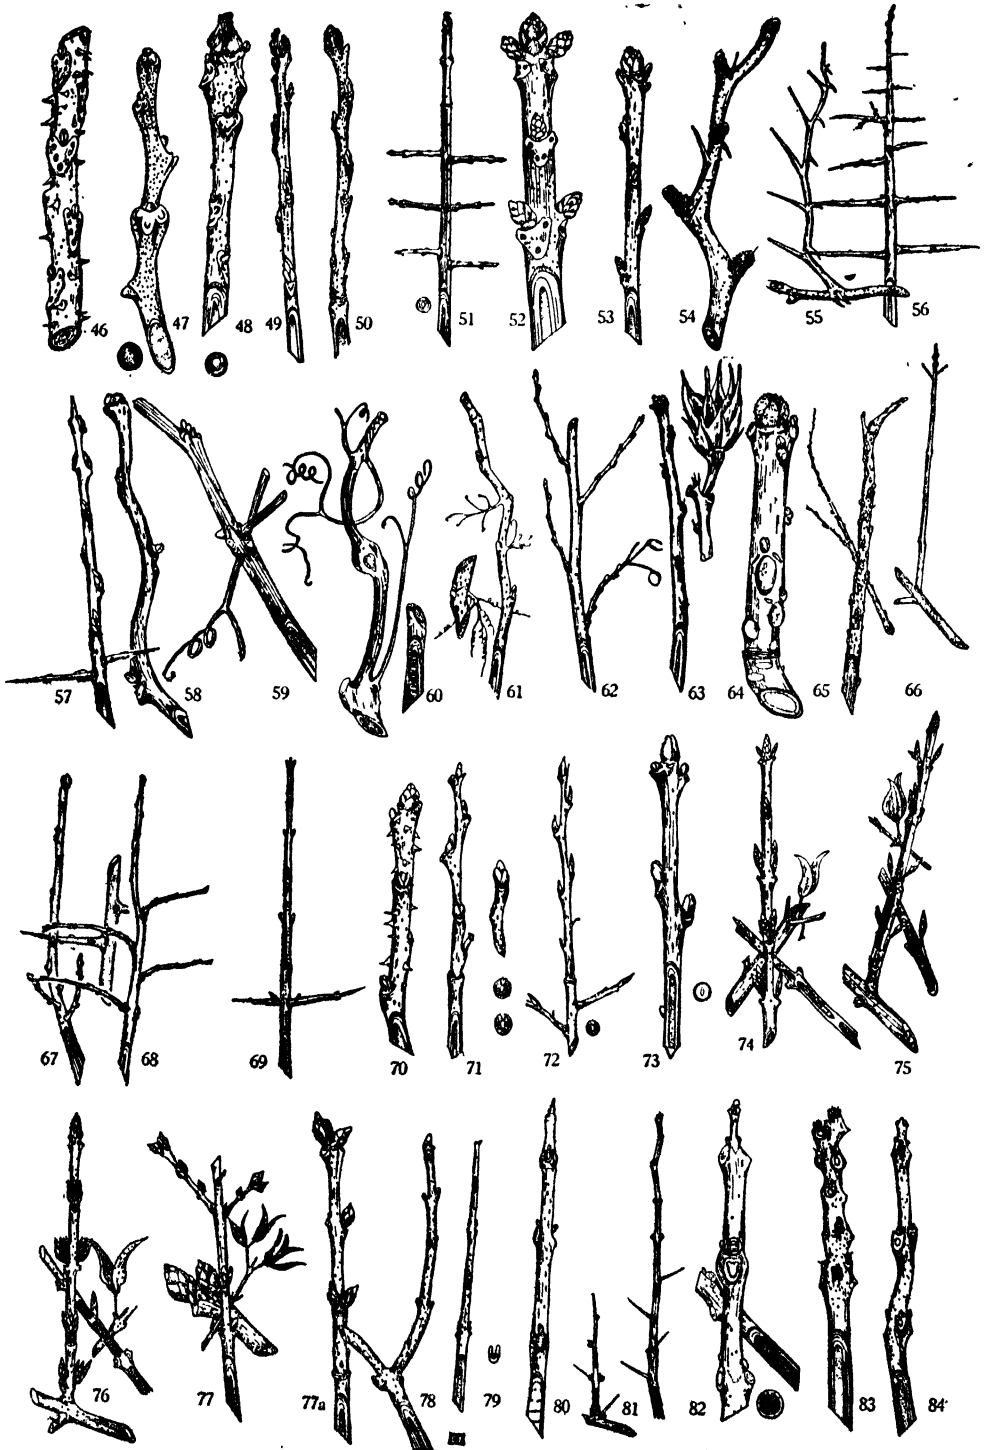 46 47 48 49 50 51 52 53 54 55 56
57 58 59 60 61 62 63 64 65 66
67 68 69 70 71 72 73 74 75
76 77 77a 78 79 80 81 82 83 84